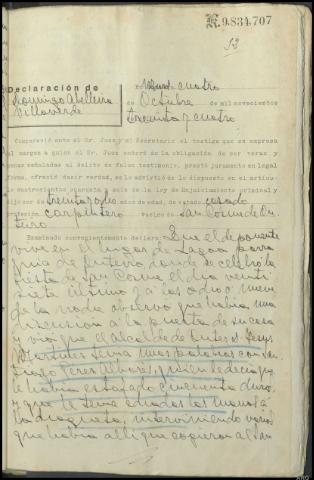 K.9.834.707
52
Declaración de
Domingo Abelleira
Villaverde
a veinticuatro
de Octubre de mil novecientos
treinta y cuatro
Compareció ante el Sr. Juez y el Secretario el testigo que se expresa
al margen a quien el Sr. Juez enteró de la obligación de ser veraz y
penas señaladas al delito de falso testimonio, prestó juramento en legal
forma, ofreció decir verdad, se le advirtió de lo dispuesto en el artícu-
lo cuatrocientos cuarenta y seis de la ley de Enjuiciamiento criminal y
dijo ser de treinta y ocho años de edad, de estado casado
profesión carpintero Vecino de San Cosme de
Examinado correspondientemente declara: Que el deponente
vive en el lugar de Lagoa parro
quia de donde se celebró la
fiesta de San Cosme el día veinti
siete último y a las ocho o nueve
de la noche observó que había una
discusión a la puerta de su casa
y vio que el alcalde de Jesús
tenía unas palabras con
Peres quien le decía que
le había estafado cincuenta duros
y que le tenía echadas las manos a
la chaqueta, interviniendo varios
que había allí que cogieron al